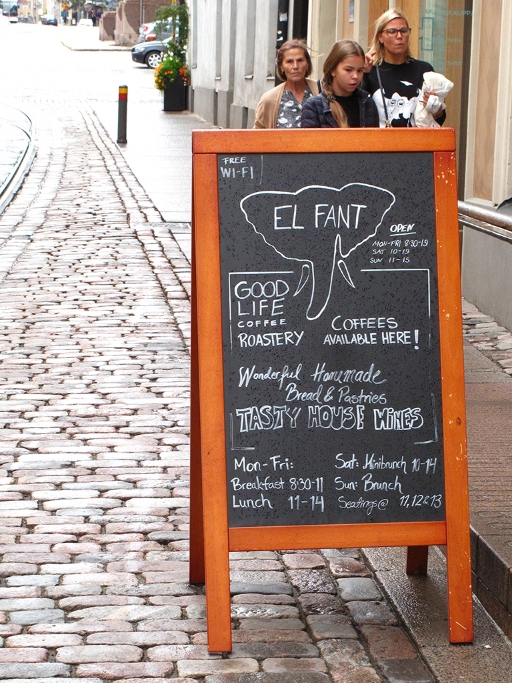 FREE
WI-FI
EL FANT
OPEN
MON-FRI 8:30-19
SAT 10-19
SUN 11-15
GOOD
LIFE
COFFEE
ROASTERY
COFFEES
AVAILABLE HERE!
Wonderful Homemade
Bread & Pastries
TASTY HOUSE WINES
Mon-Fri:
Breakfast 8:30-11
Lunch 11-14
Sat: Minibrunch 10-14
Sun: Brunch
Seatings@ 11,12&13